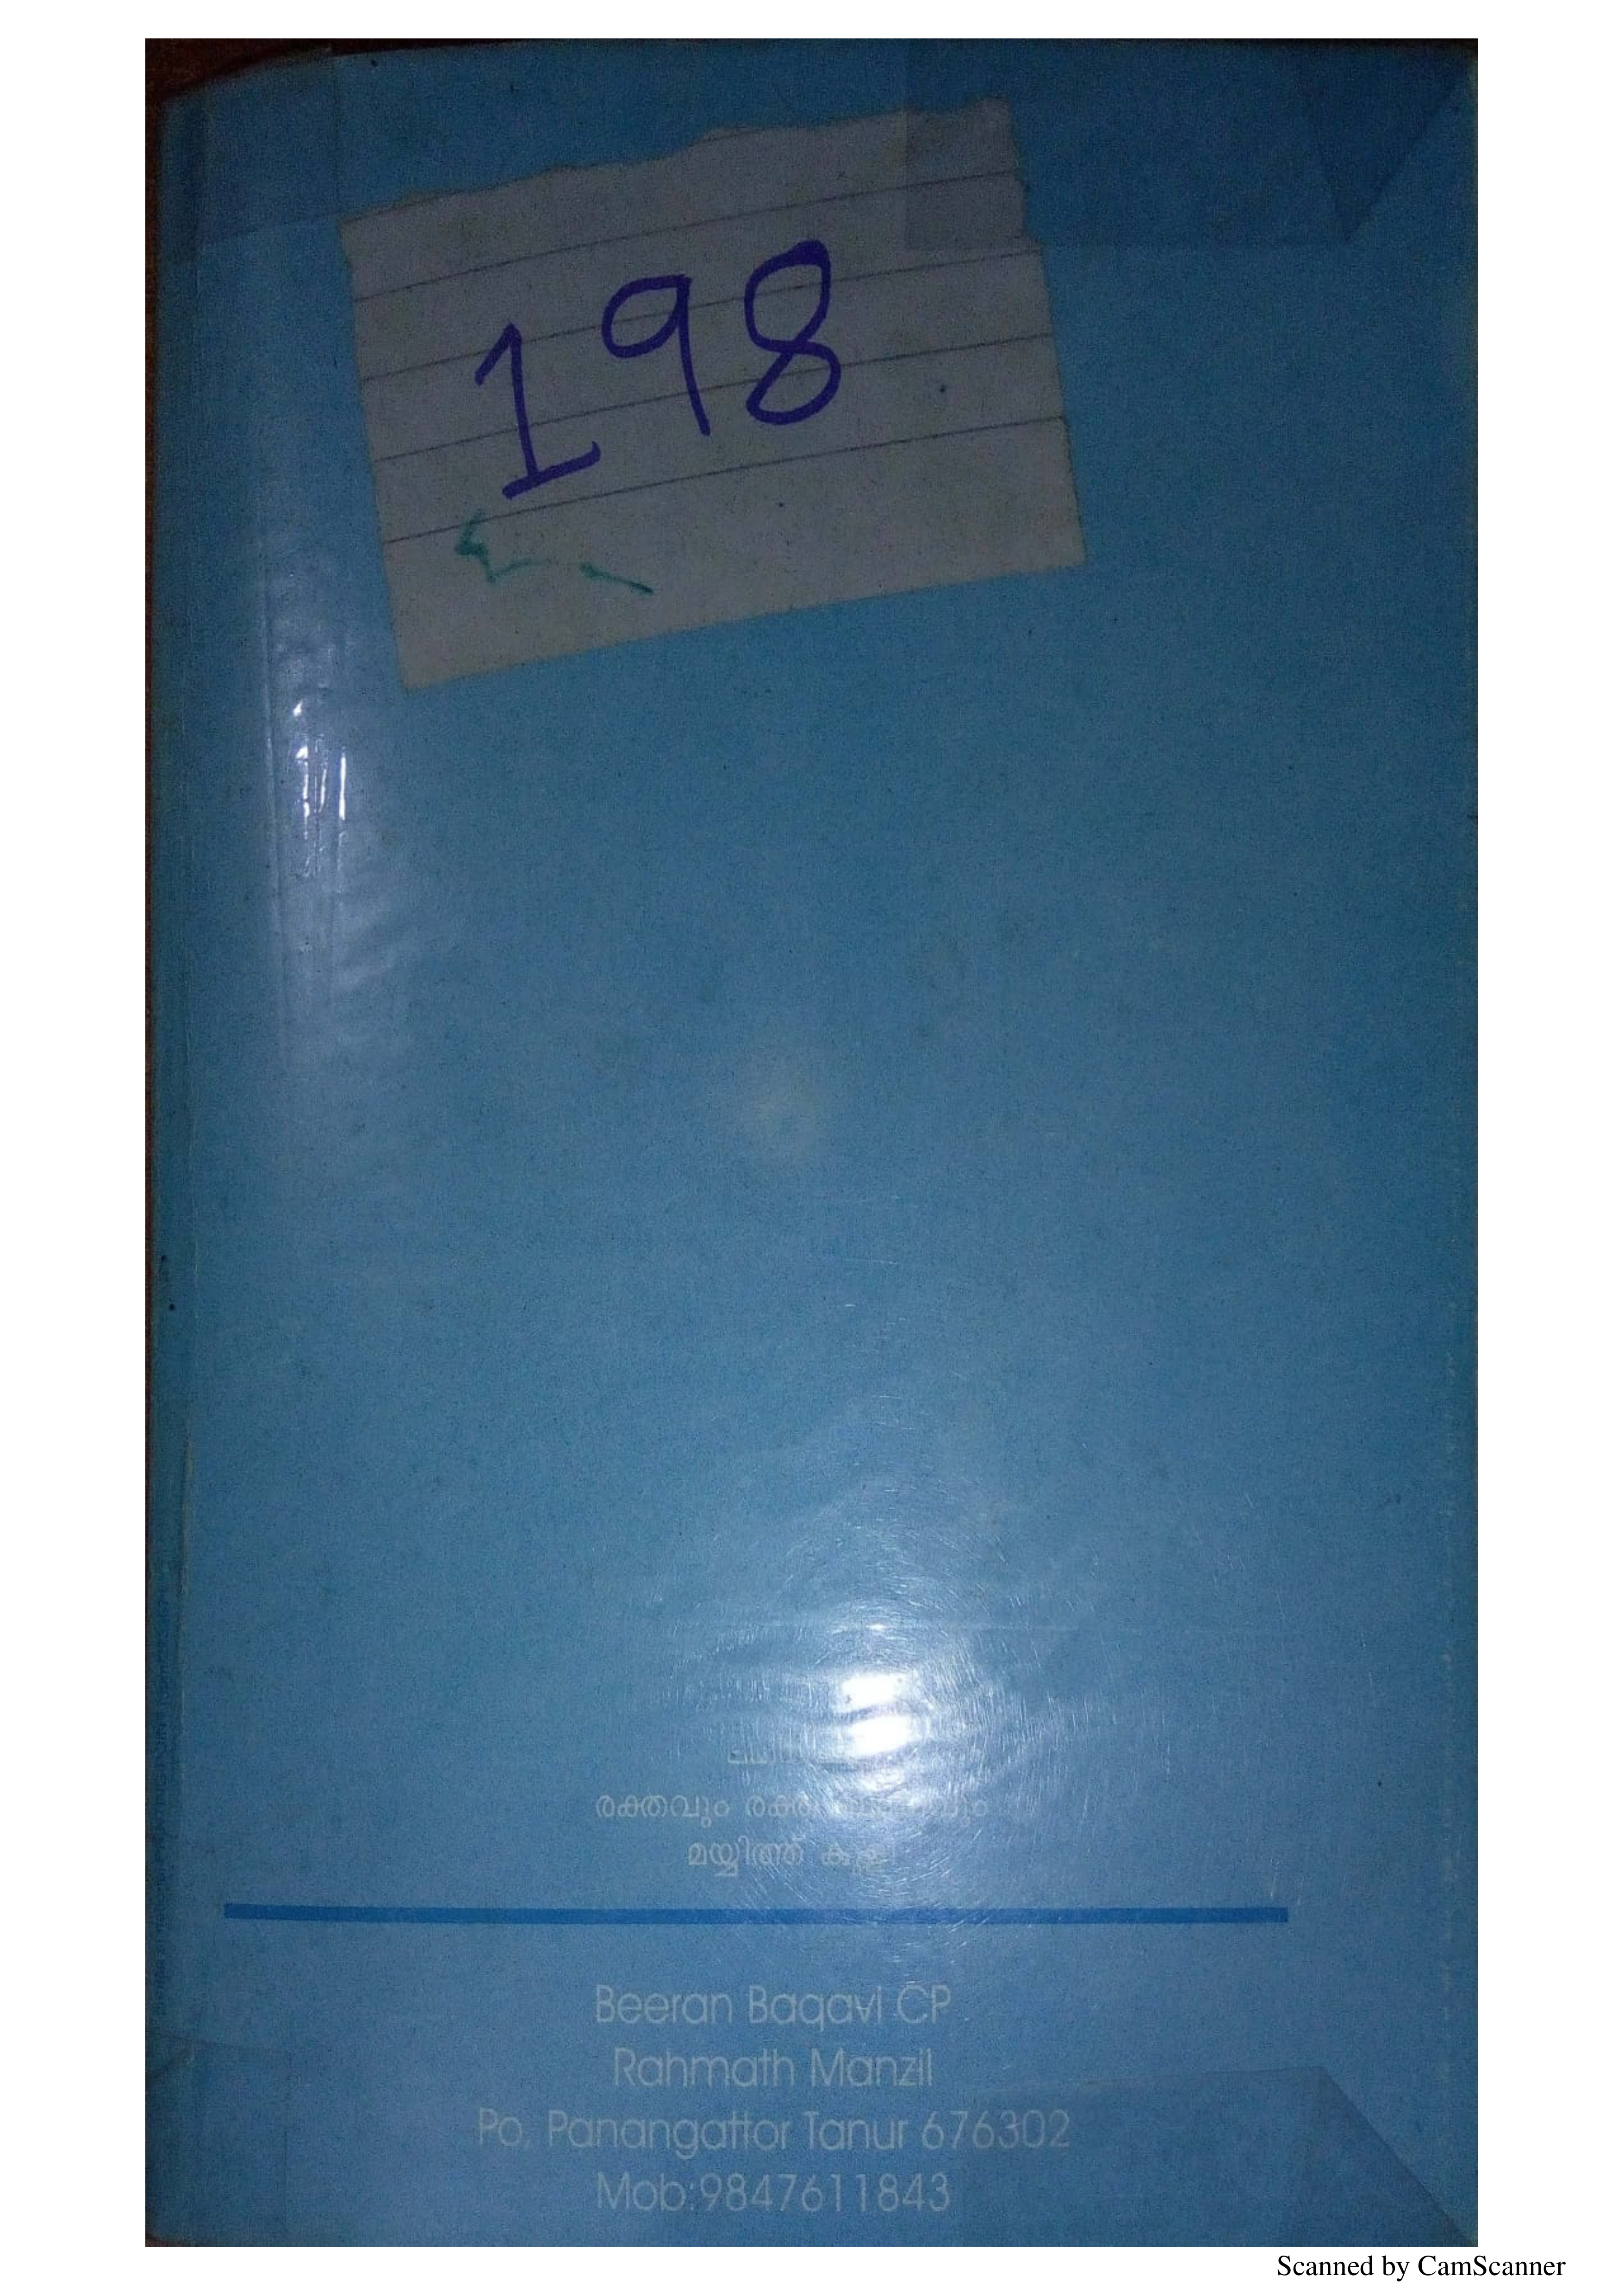 198
രക്തവും
മയ്യിത്ത്
Beeran Baqavi CP
Rahmath Manzil
Po, Panangattor Tanur 676302
Mob:9847611843
Scanned by CamScanner